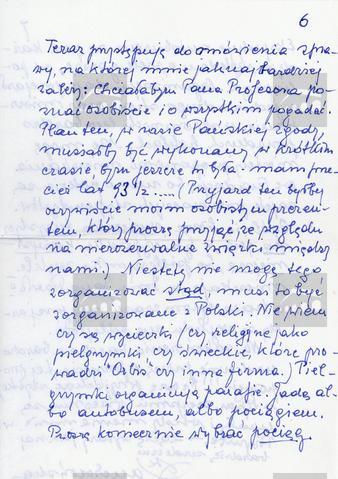 6
Teraz przystępuję do omówienia spra-
wy, na której mnie jaknajbardziej
zależy: Chciałabym Pana Profesora po-
znać osobiście i o wszystkim pogadać.
Plan ten, w razie Pańskiej zgody,
musiałby być wykonany w krótkim
czasie, bym jeszcze tu była - mam prze-
cież lat 93 1/2 ..... (Przyjazd ten byłby
oczywiście moim osobistym prezen-
tem, który proszę przyjąć ze względu
na nierozerwalne związki między
nami.) Niestety nie mogę tego
zorganizować stąd, musi to być
zorganizowane z Polski. Nie wiem
czy są wycieczki (czy religijne jako
pielgrzymki, czy świeckie, które pro-
wadzi "Orbis" czy inna firma.) Piel-
grzymki organizują parafie. Jadą al-
bo autobusem, albo pociągiem.
Proszę koniecznie wybrać pociąg